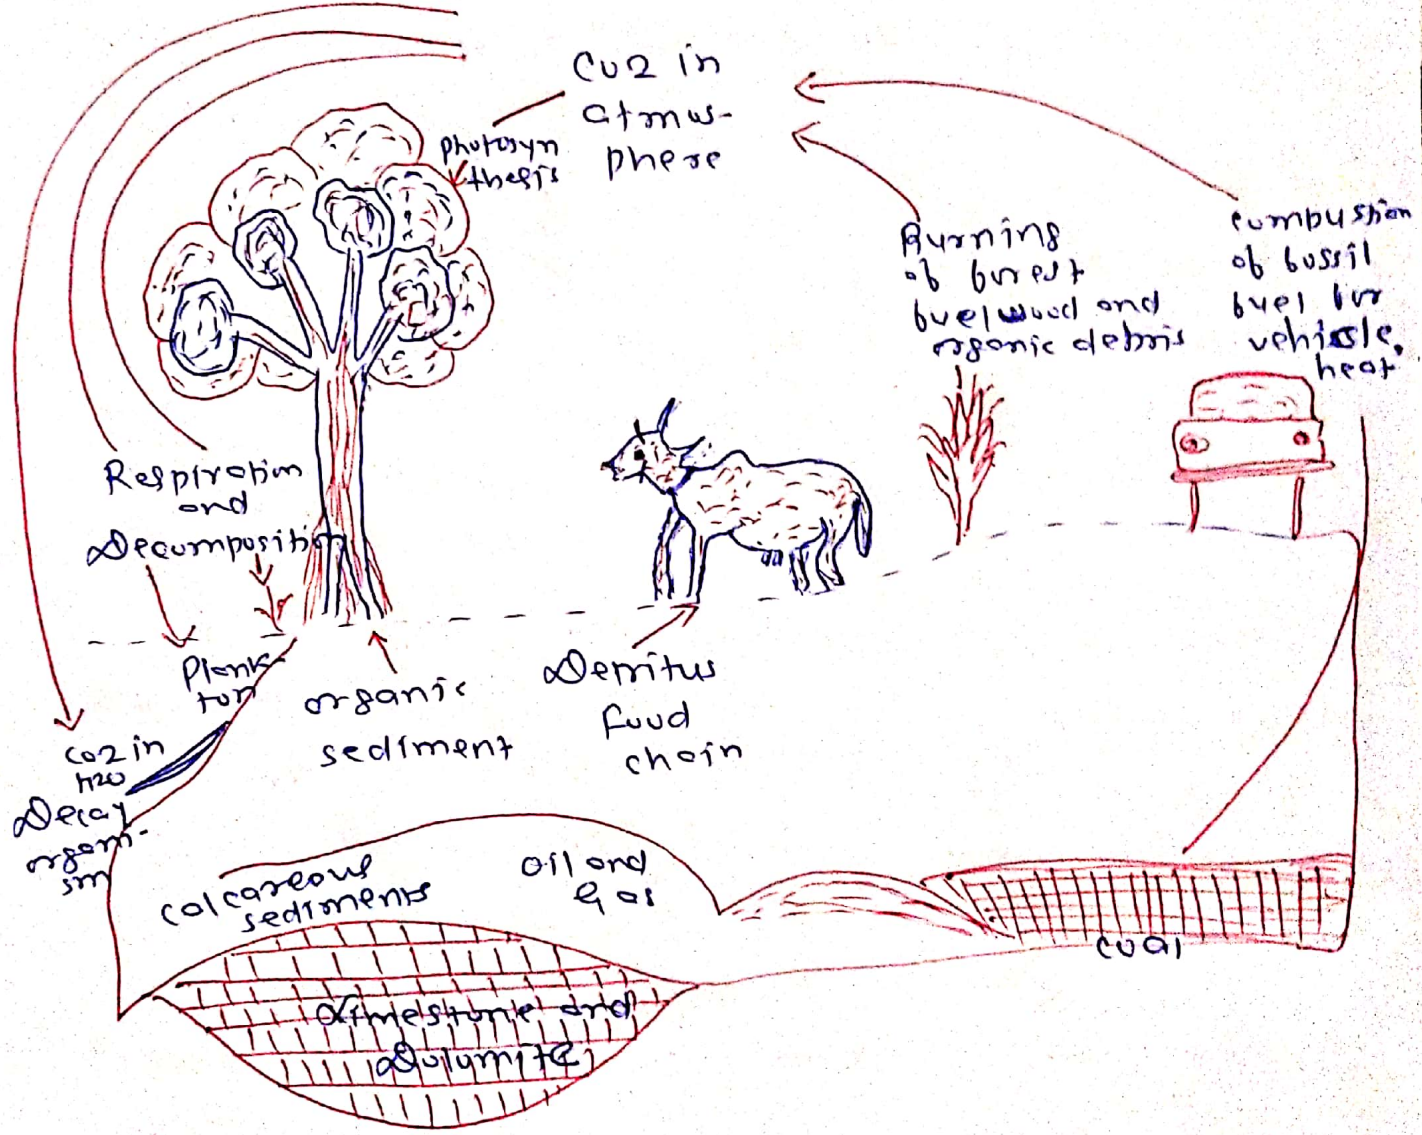 CO2 in
atmos-
phere
photosyn
thesis
Burning
of forest
fuelwood and
organic debris
combustion
of fossil
fuel for
vehicle,
heat
Respiration
and
Decomposition
Plank-
ton
organic
sediment
Detritus
food
chain
co2 in
H2O
Decay
organi-
sm
calcareous
sediments
oil and
Gas
coal
Limestone and
Dolomite